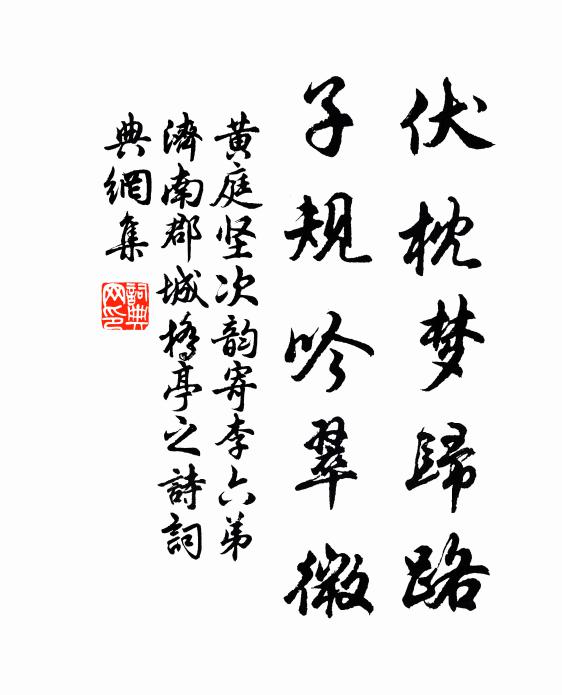 伏枕梦歸路
子規吟翠微
黄庭坚次韵寄李六弟
濟南郡城橋亭之詩詞
典網集
詞典网印